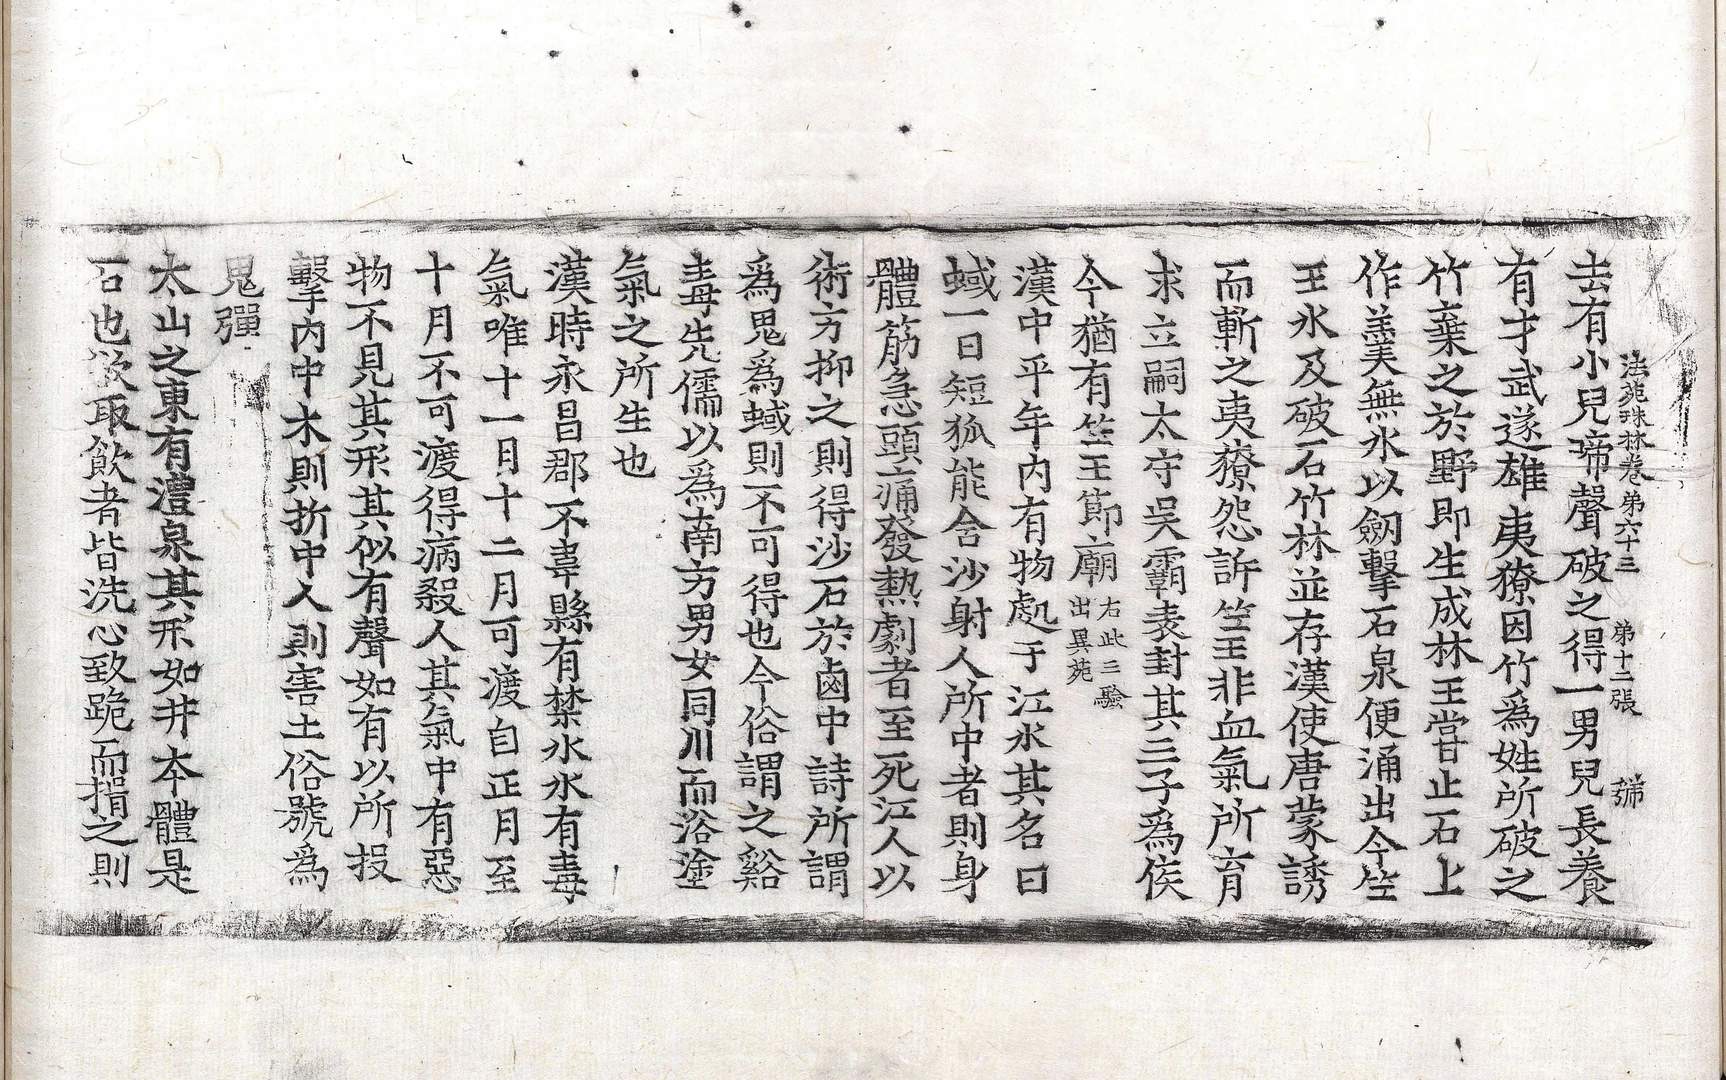 法苑珠林卷弟六十三 弟十二張 號
去有小兒啼聲破之得一男兒長養
有才武遂雄夷獠因竹為姓所破之
竹棄之於野即生成林王嘗止石上
作羹無水以劒擊石泉便涌出今竺
王水及破石竹林並存漢使唐蒙誘
而斬之夷獠怨訴竺王非血氣所育
求立嗣太守吳霸表封其三子為侯
今猶有竺王節廟右此三驗出異苑
漢中平年內有物處于江水其名曰
蜮一曰短狐能含沙射人所中者則身
體筋急頭痛發熱劇者至死江人以
術方抑之則得沙石於鹵中詩所謂
為鬼為蜮則不可得也今俗謂之谿
毒先儒以為南方男女同川而浴塗
氣之所生也
漢時永昌郡不韋縣有禁水水有毒
氣唯十一月十二月可渡自正月至
十月不可渡得病殺人其氣中有惡
物不見其形其似有聲如有以所投
擊內中木則折中人則害土俗號為
鬼彈
太山之東有澧泉其形如井本體是
石也欲取飲者皆洗心致跪而揖之則